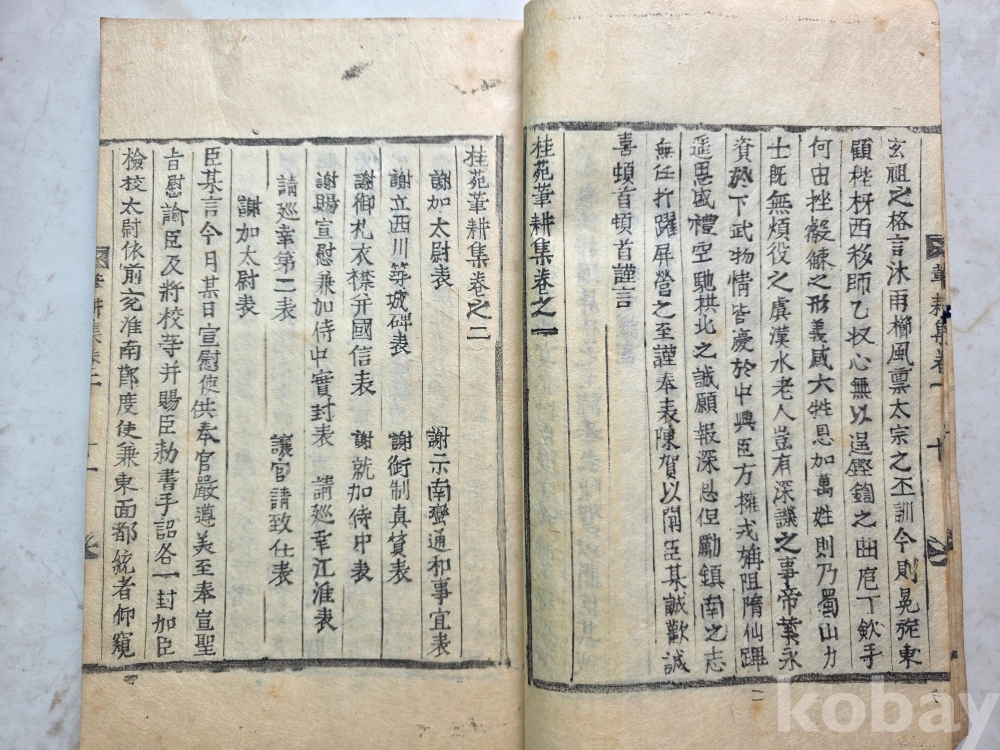 玄祖之格言沐雨櫛風禀太宗之丕訓今則晃旒東
顧桴枒西移師乙収心無以逞鏗鍧之曲庖丁欽手
何由挫觳觫之形義感六牲恩加萬姓則乃蜀山力
士旣無煩役之虞漢水老人豈有深譏之事帝業永
資於下武物情皆慶於中興臣方擁戎旃阻隋仙蹕
遥思盛禮空馳拱北之誠願報深恩但勵鎮南之志
無任抃躍屛營之至謹奉表陳賀以聞臣某誠歡誠
喜頓首頓首謹言
桂苑筆耕集卷之一
筆耕集卷一
十
桂苑筆耕集卷之二
謝加太尉表 謝示南蠻通和事宜表
謝立西川築城碑表 謝御制真賛表
謝御札衣襟并國信表 謝就加侍中表
謝賜宣慰兼加侍中實封表 請廵幸江淮表
請廵幸第二表 讓官請致仕表
謝加太尉表
臣某言今月某日宣慰使供奉官嚴遵美至奉宣聖
旨慰諭臣及將校等并賜臣勅書手詔各一封加臣
檢校太尉依前充淮南節度使兼東面都統者仰窺
筆耕集卷二
一
kobay